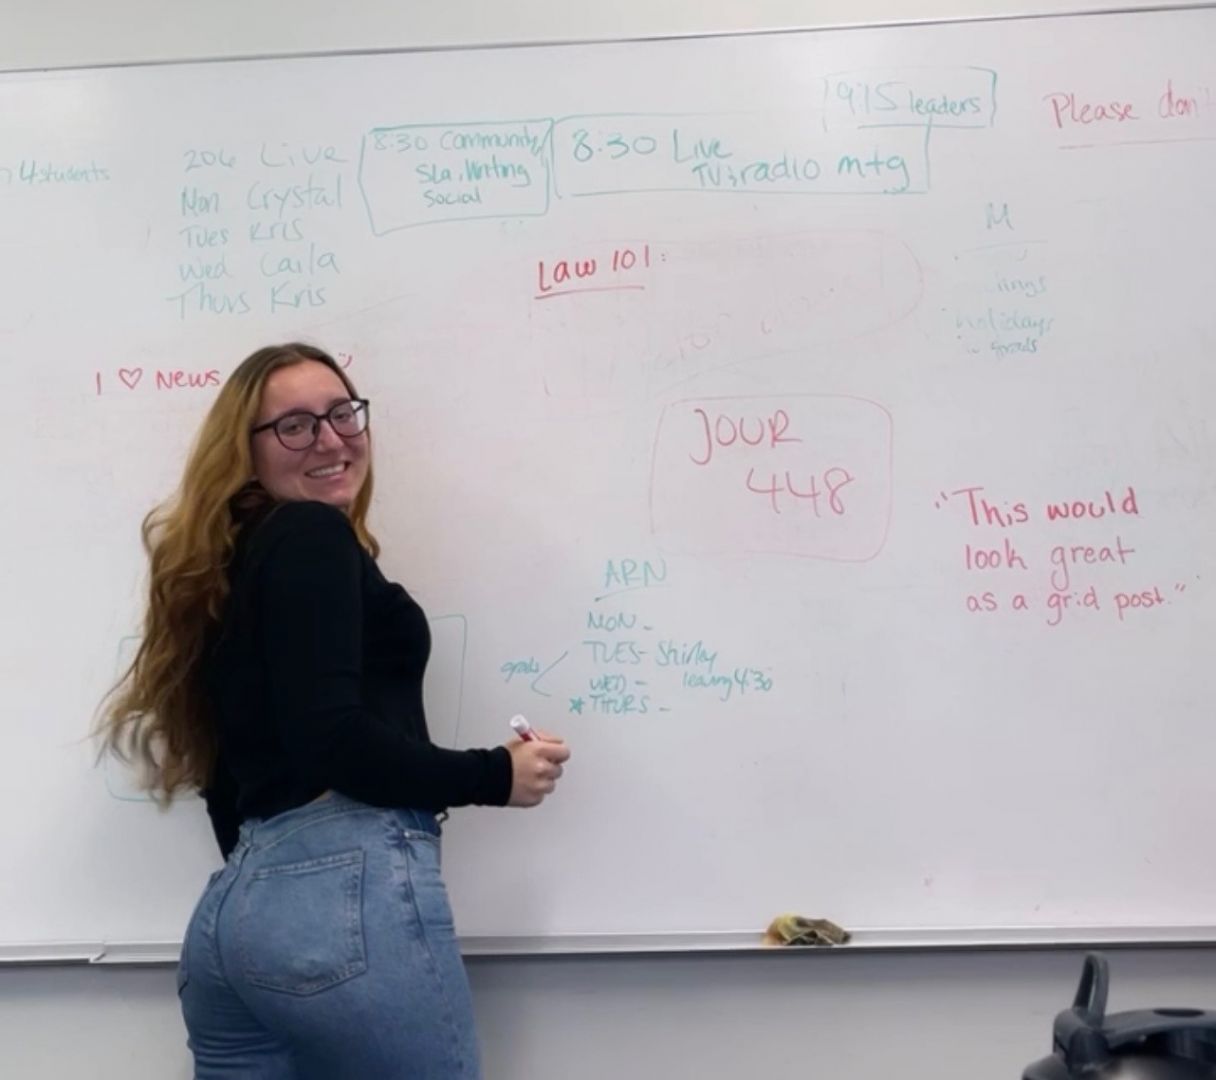 4 students
206 Live
Mon Crystal
Tues Kris
Wed Caila
Thurs Kris
8:30 Community
Sla, Writing
Social
8:30 Live
TV & radio mtg
9:15 leaders
Please don't
M
ings
holidays
grads
Law 101:
I ♡ News
JOUR
448
"This would
look great
as a grid post."
ARN
MON -
TUES - Shirley
WED - leaving 4:30
* THURS -